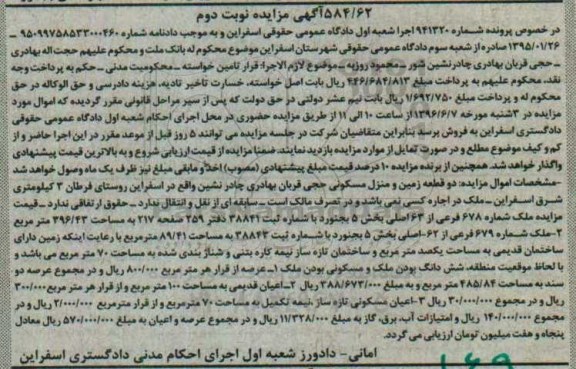 ۵۸۴/۶۲آگهی مزایده نوبت دوم
در خصوص پرونده شماره ۹۴۱۳۲۰ اجرا شعبه اول دادگاه عمومی حقوقی اسفراین و به موجب دادنامه شماره ۹۵۰۹۹۷۵۸۵۳۳۰۰۰۴۶۰ –
۱۳۹۵/۰۱/۲۶ صادره از شعبه سوم دادگاه عمومی حقوقی شهرستان اسفراین موضوع محکوم له بانک ملت و محکوم علیهم حجت اله بهادری
– حجی قربان بهادری چادرنشین شور – محمود روزبه – موضوع لازم الاجرا: قرار تامین خواسته – محکومیت مدنی – حکم به پرداخت وجه
نقد، محکوم علیهم به پرداخت مبلغ ۴۴۶/۶۸۴/۸۱۳ ریال بابت اصل خواسته، خسارت تاخیر تادیه، هزینه دادرسی و حق الوکاله در حق
محکوم له و پرداخت مبلغ ۱/۶۹۲/۷۵۰ ریال بابت نیم عشر دولتی در حق دولت که پس از سیر مراحل قانونی مقرر گردیده که اموال مورد
مزایده در ۳شنبه مورخه ۱۳۹۶/۶/۷ از ساعت ۱۰ الی ۱۱ از طریق مزایده حضوری در محل اجرای احکام شعبه اول دادگاه عمومی حقوقی
دادگستری اسفراین به فروش برسد بنابراین متقاضیان شرکت در جلسه مزایده می توانند ۵ روز قبل از موعد مقرر در این اجرا حاضر و از
کم و کیف موضوع مطلع و در صورت تمایل از موارد مزایده بازدید نمایند، ضمنا مزایده از قیمت ارزیابی شروع و به بالاترین قیمت پیشنهادی
واگذار خواهد شد. همچنین از برنده مزایده ۱۰ درصد قیمت مبلغ پیشنهادی (مصوب) اخذ و مابقی مبلغ نیز ظرف یک ماه وصول خواهد شد
–مشخصات اموال مزایده: دو قطعه زمین و منزل مسکونی حجی قربان بهادری چادر نشین واقع در اسفراین روستای فرطان ۳ کیلومتری
شرق اسفراین – ملک در اجاره کسی نمی باشد و در تصرف مالک است – سابقه ای از نقل و انتقال ندارد – حقوق ارتفاقی ندارد – قیمت
مزایده ملک شماره ۶۷۸ فرعی از ۶۳اصلی بخش ۵ بجنورد با شماره ثبت ۳۸۸۴۱ دفتر ۲۵۹ صفحه ۲۱۷ به مساحت ۳۹۶/۴۳ متر مربع
۲–ملک شماره ۶۷۹ فرعی از ۶۲–اصلی بخش ۵ بجنورد با شماره ثبت ۳۸۸۴۳ به مساحت ۸۹/۴۱ مترمربع با رعایت اینکه زمین دارای
ساختمان قدیمی به مساحت یکصد متر مربع و ساختمان تازه ساز نیمه کاره بتنی و شناژ بندی شده به مساحت ۷۰ متر مربع می باشد و
با لحاظ موقعیت منطقه، شش دانگ بودن ملک و مسکونی بودن ملک ۱–عرصه از قرار هر متر مربع ۸۰۰/۰۰۰ ریال و در مجموع عرصه دو
سند به مساحت ۴۸۵/۸۴ متر مربع و به مبلغ ۳۸۸/۶۷۲/۰۰۰ ریال ۲–اعیان قدیمی به مساحت ۱۰۰ متر مربع و از قرار هر متر مربع ۳۰۰/۰۰۰
ریال و در مجموع ۳۰/۰۰۰/۰۰۰ ریال ۳–اعیان مسکونی تازه ساز نیمه تکمیل به مساحت ۷۰ مترمربع و از قرار مترمربع ۲/۰۰۰/۰۰۰ ریال و در
مجموع ۱۴۰/۰۰۰/۰۰۰ ریال و امتیازات آب، برق، گاز به مبلغ ۱۱/۳۲۸/۰۰۰ ریال و در مجموع عرصه و اعیان به مبلغ ۵۷۰/۰۰۰/۰۰۰ ریال معادل
پنجاه و هفت میلیون تومان ارزیابی می گردد.
امانی– دادورز شعبه اول اجرای احکام مدنی دادگستری اسفراین